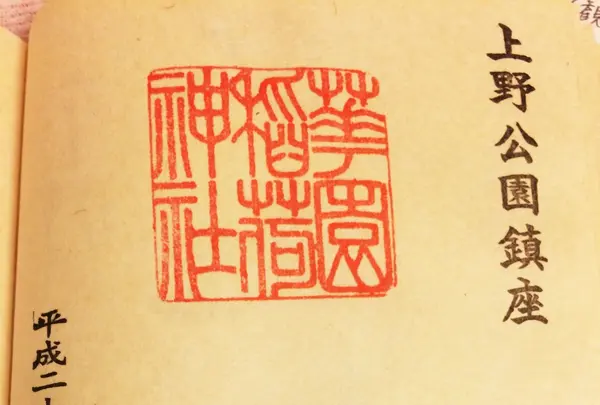 上野公園鎮座
華園
稲荷
神社
平成二